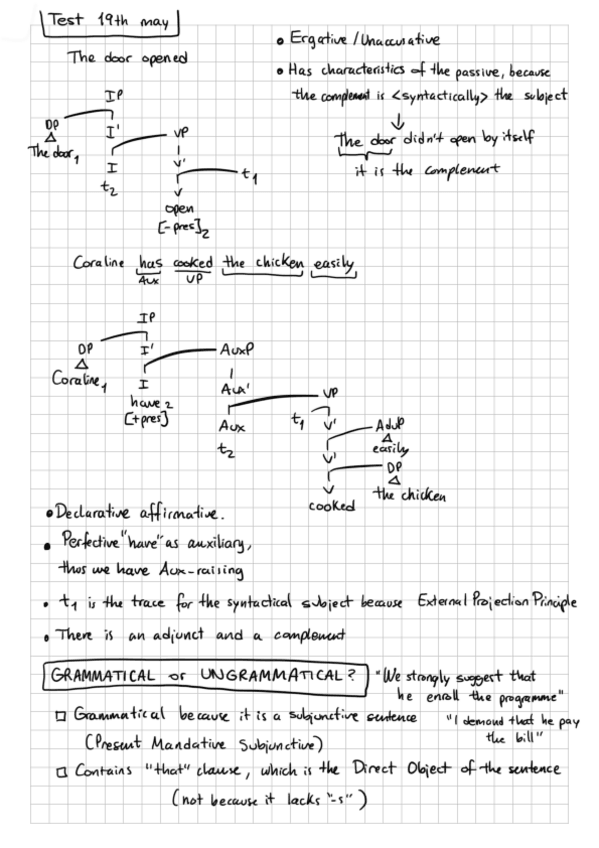 Test 19th may
The door opened
IP
DP I' VP
The door₁ I V' t₁
t₂ V
open
[-pres]₂
• Ergative / Unaccusative
• Has characteristics of the passive, because
the complement is <syntactically> the subject
↓
The door didn't open by itself
it is the complement
Coraline has cooked the chicken easily
Aux VP
IP
DP I' AuxP
Coraline₁ I Aux' VP
have₂ Aux t₁ V' AdvP
[+pres] t₂ easily
V' DP
V the chicken
cooked
• Declarative affirmative.
• Perfective "have" as auxiliary,
thus we have Aux-raising
• t₁ is the trace for the syntactical subject because External Projection Principle
• There is an adjunct and a complement
GRAMMATICAL or UNGRAMMATICAL?
"We strongly suggest that
he enroll the programme"
□ Grammatical because it is a subjunctive sentence
(Present Mandative Subjunctive)
"I demand that he pay
the bill"
□ Contains "that" clause, which is the Direct Object of the sentence
(not because it lacks "-s")